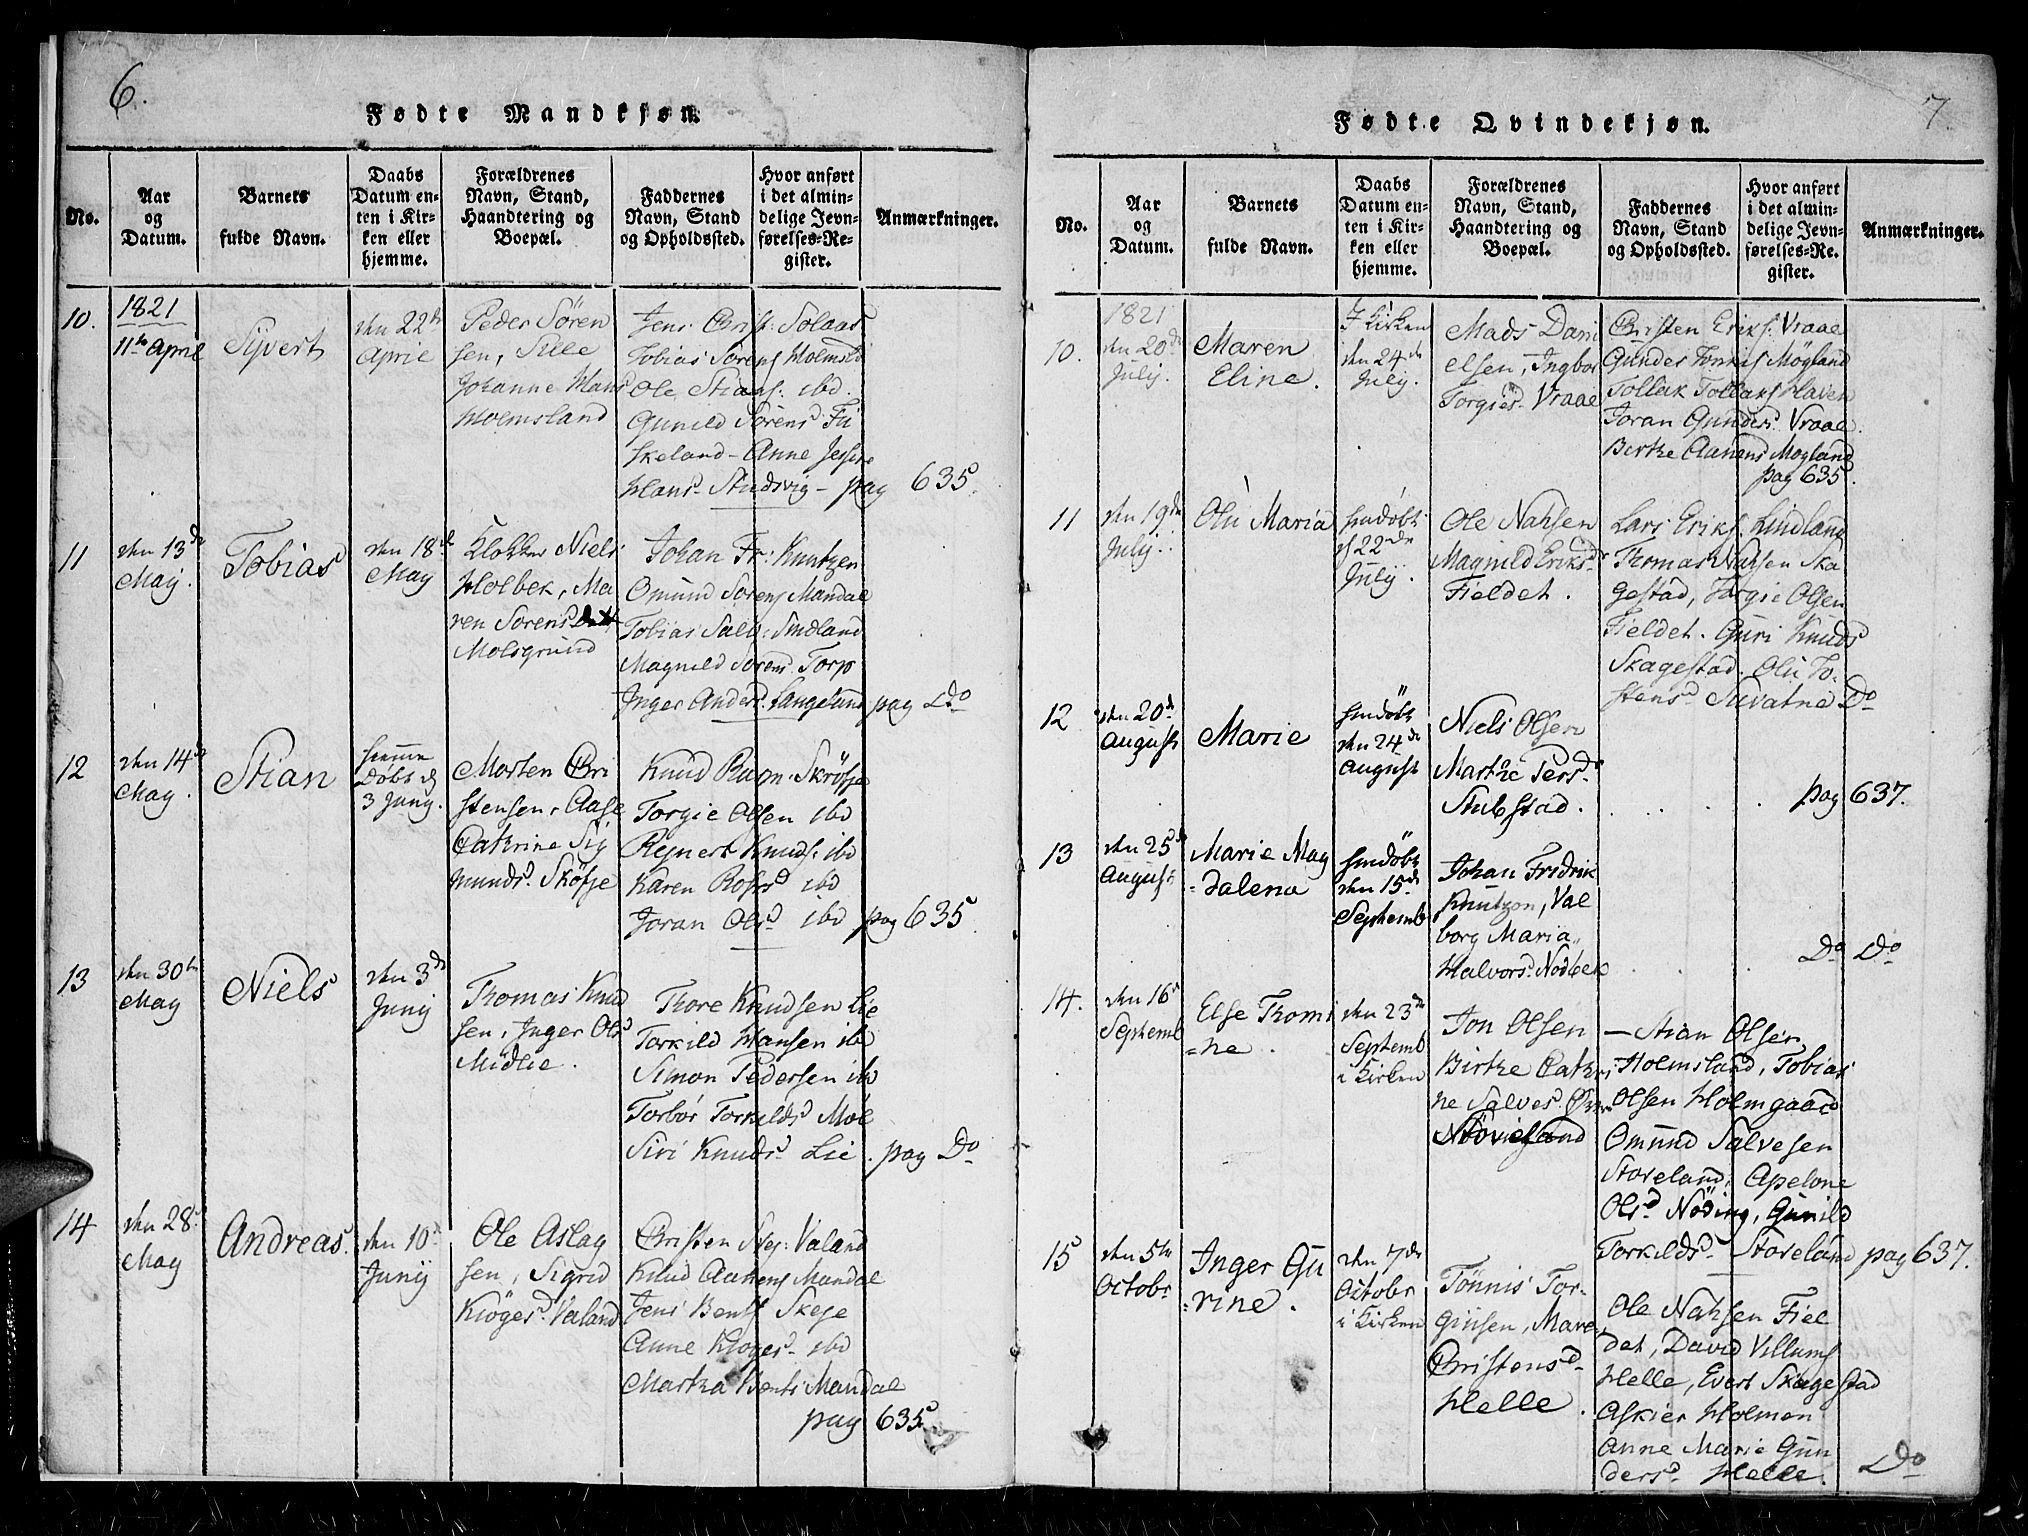 6.
Fødte Mandkjøn.
No.
Aar
og
Datum.
Barnets
fulde Navn.
Daabs
Datum en-
ten i Kir-
ken eller
hjemme.
Forældrenes
Navn, Stand,
Haandtering og
Boepæl.
Faddernes
Navn, Stand
og Opholdssted.
Hvor anført
i det almin-
delige Jevn-
førelses-Re-
gister.
Anmærkninger.
10.
1821
11te April
Syvert
den 22de
April
Peder Søren
sen, Sille
Johanne Hans
Holmsland
Jens Christ: Solaas
Tobias Sørens Holmsld
Ole Stians: ibd.
Gunild Sørensd Fi
skeland - Anne Jessine
Hansd Studsvig - pag 635.
11
den 13de
May.
Tobias
den 18de
May
Klokker Niels
Holbek, Ma
ren Sørensd
Molsgrund
Johan Fr: Kuntzen
Omund Sørens Mandal
Tobias Salv: Smdland
Magnild Sørensd Torp
Inger Andersd Langelund pag Do
12
den 14de
May.
Stian
hjemme
Døbt d
3 Juny.
Morten Chri
stensen, Aase
Cathrine Sig
mundsd. Skøfje
Knud Ragn: Skrøfje
Torgie Olsen ibd
Reynert Knuds: ibd
Karen Rofsd ibd
Joran Olsd ibd pag 635.
13
den 30te
May
Niels
den 3de
Junij
Thomas Knud
sen, Inger Olsd
Midlie.
Thore Knudsen Lie
Torkild Hansen ibd
Simon Pedersen ibd
Torbor Torkildsd Møl
Siri Knudsd Lie. pag Do
14
den 28de
May
Andreas.
den 10de
Junij
Ole Aslag
sen, Sigrid
Kiøgesd Valand
Christen Steg: Valand
Knud Aanens Mandal
Jens Bents Skeje
Anne Kiøgesd ibd
Martha Bents Mandal
pag 635.
7.
Fødte Qvindekjøn.
No.
Aar
og
Datum.
Barnets
fulde Navn.
Daabs
Datum en-
ten i Kir-
ken eller
hjemme.
Forældrenes
Navn, Stand,
Haandtering og
Boepæl.
Faddernes
Navn, Stand
og Opholdssted.
Hvor anført
i det almin-
delige Jevn-
førelses-Re-
gister.
Anmærkninger.
10.
1821
den 20de
July.
Maren
Eline.
I Kirken
den 24de
July.
Mads Dani
elsen, Ingbor
Torgiesd Vraae
Christen Eriks: Vraae
Gunder Tønnes Mögland
Tollak Tollaks Haven
Joran Gundersd Vraae.
Birthe Aanens Mogland
pag 635.
11
den 19de
July.
Olu Maria
hmdøbt
d 22de
July.
Ole Nahsen
Magnild Eriksd
Fieldet.
Lars Eriks. Lindland
Thomas Nahsen Ska
gestad, Torgie Olsen
Fieldet. Guri Knuds
Skagestad. Olu To-
stensd Suvatne Do
12
den 20de
August
Marie
hmdøbt
den 24de
August
Niels Olsen
Marthe Persd
Stubstad.
pag 637.
13
den 25de
August
Marie Mag
=dalena
hmdøbt
den 15de
Septemb
Johan Fridrik
Knutzon, Val
borg Maria
Halvorsd Nodbek
Do Do
14.
den 16de
Septemb
Else Thomi
=ne.
den 23de
Septemb
i Kirken
Jon Olsen
Birthe Cathri
ne Salvesd
— Stian Olsen
Holmsland, Tobias
Olsen Holmgaard
Omund Salvesen
Storeland, Apelone
Olsd Nöding, Gunild
Torkildsd Storeland pag 637.
15
den 5te
Octobr
Inger Gu
=rine.
den 7de
Octobr
i Kirken
Tønnis Tor-
giusen, Mare
Christensd
Helle.
Ole Nahsen Fiel
det, David Villums
Helle, Evert Skagestad
Askier Holmen
Anne Marie Gun
dersd Helle. Do